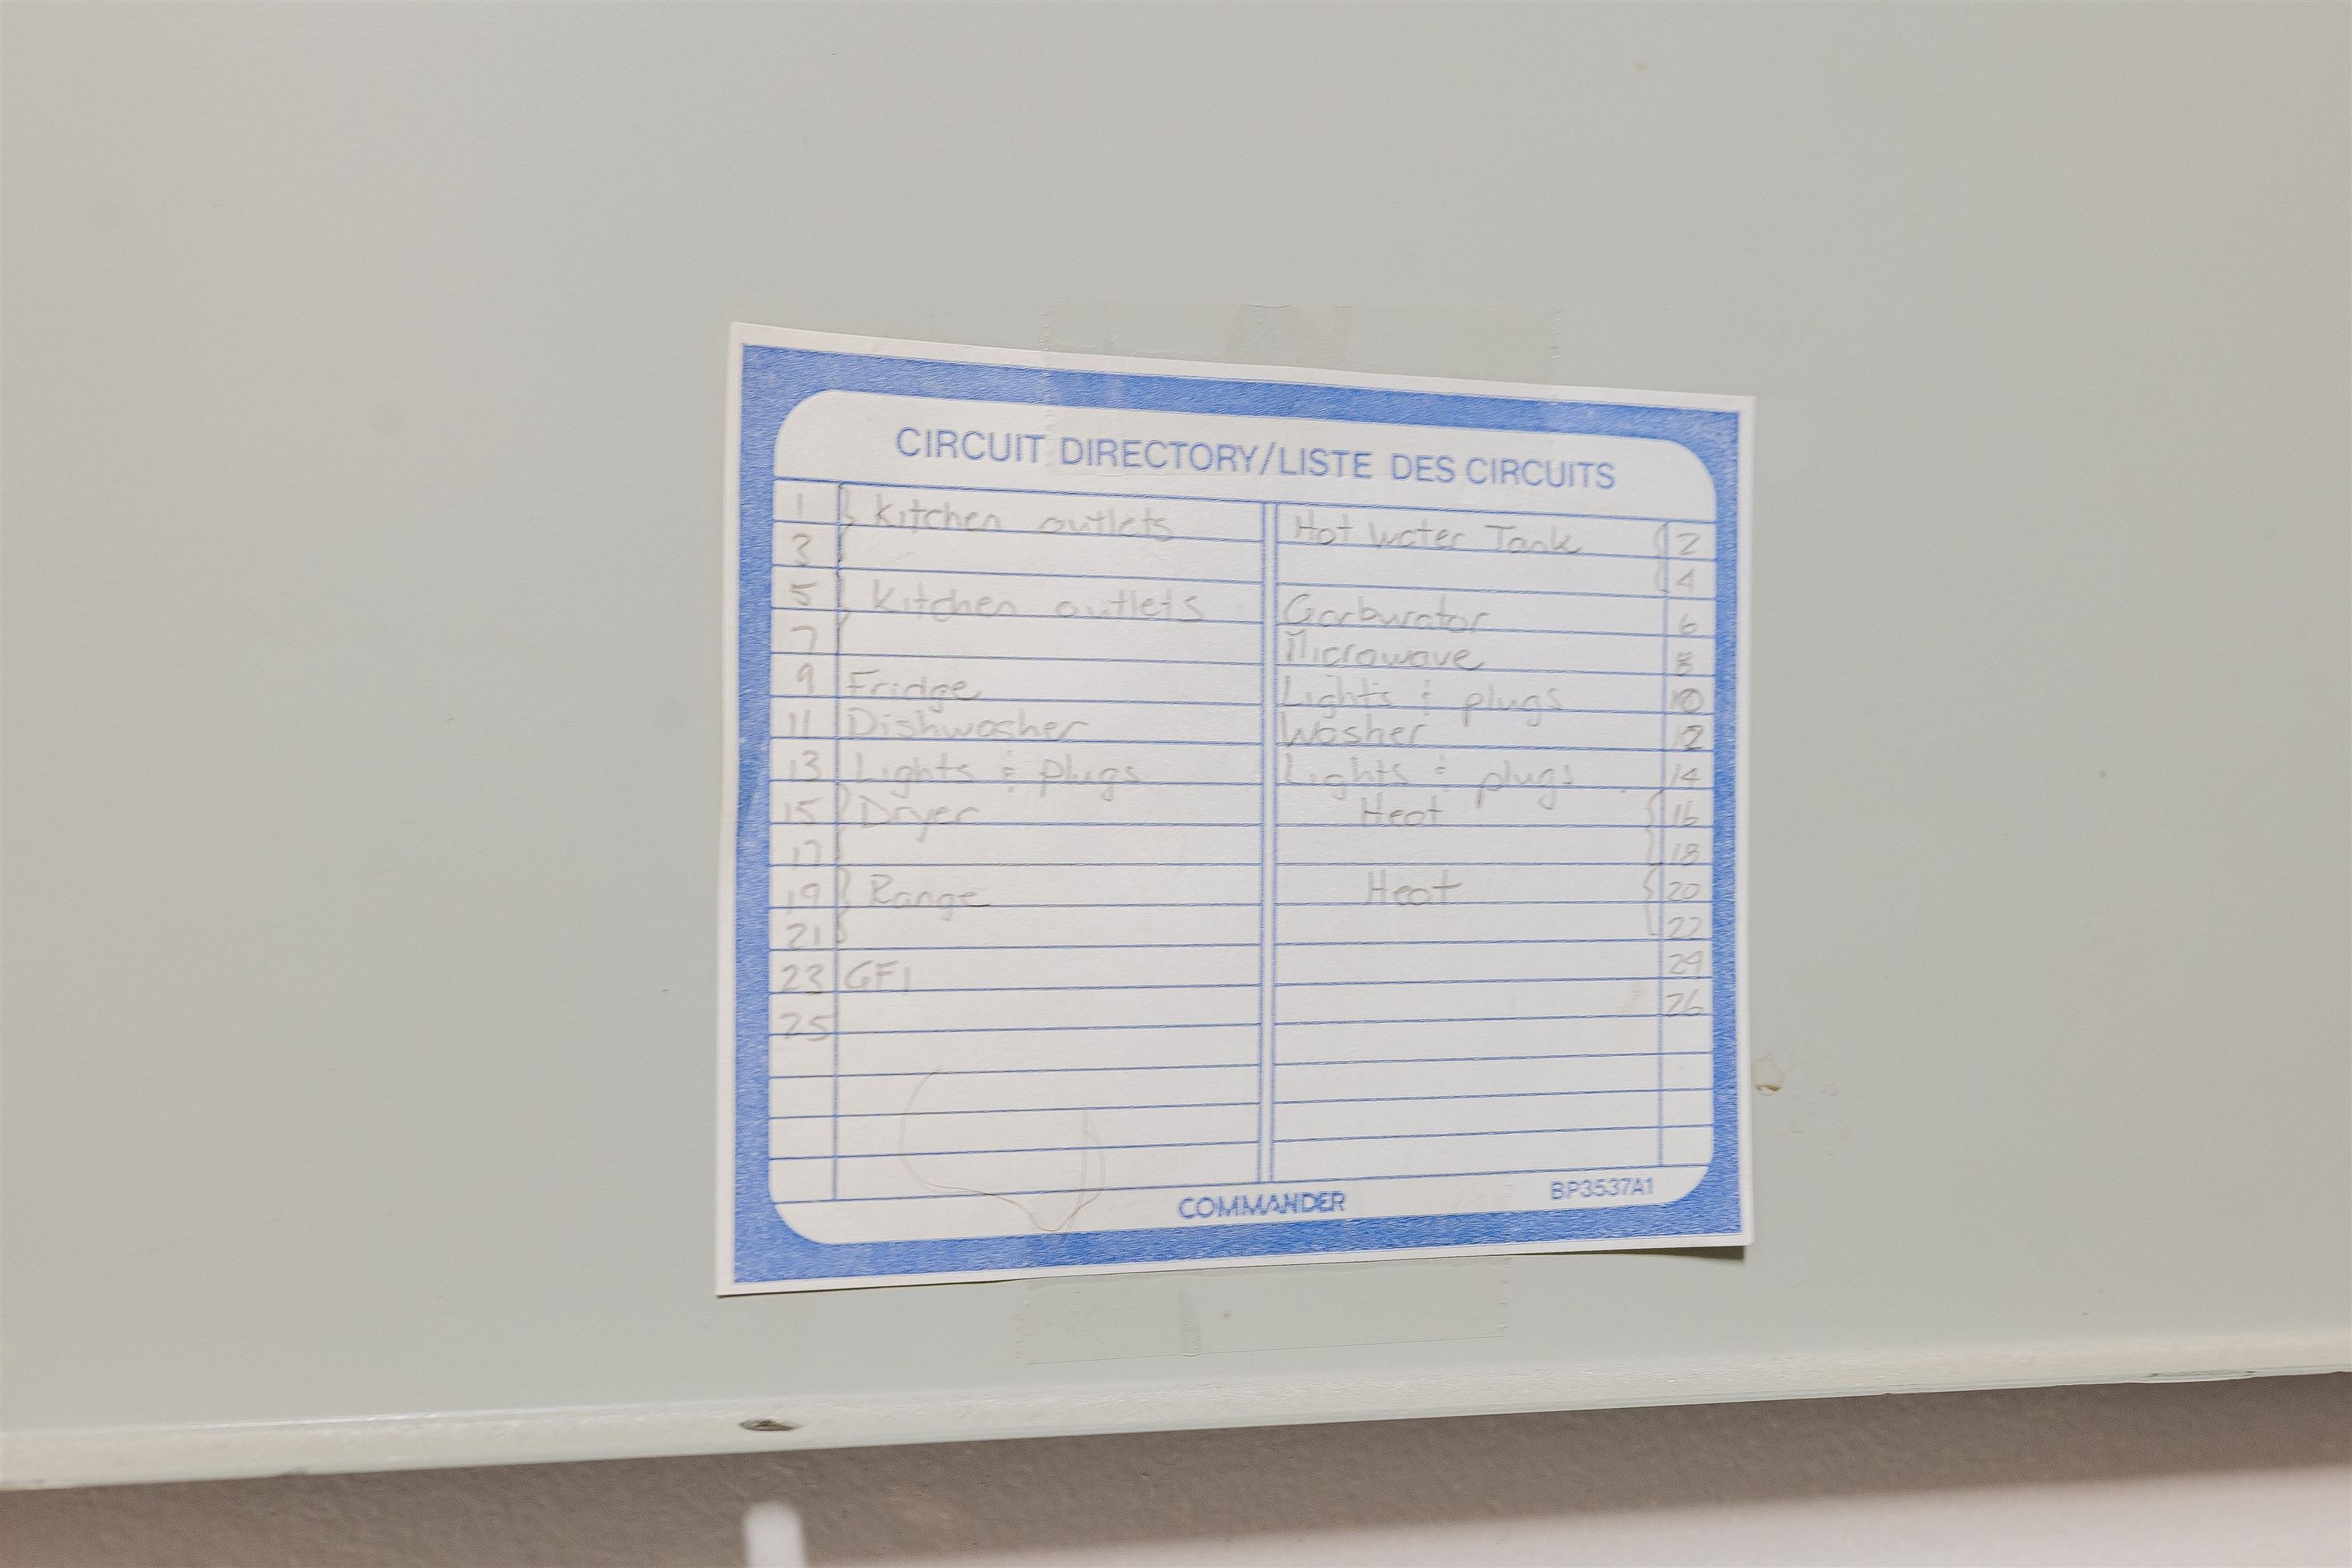 CIRCUIT DIRECTORY/LISTE DES CIRCUITS
1 Kitchen outlets Hot Water Tank 2
3 4
5 Kitchen outlets Garburator 6
7 Microwave 8
9 Fridge Lights & plugs 10
11 Dishwasher Washer 12
13 Lights & Plugs Lights & plugs 14
15 Dryer Heat 16
17 18
19 Range Heat 20
21 22
23 GFI 24
25 26
COMMANDER BP3537A1